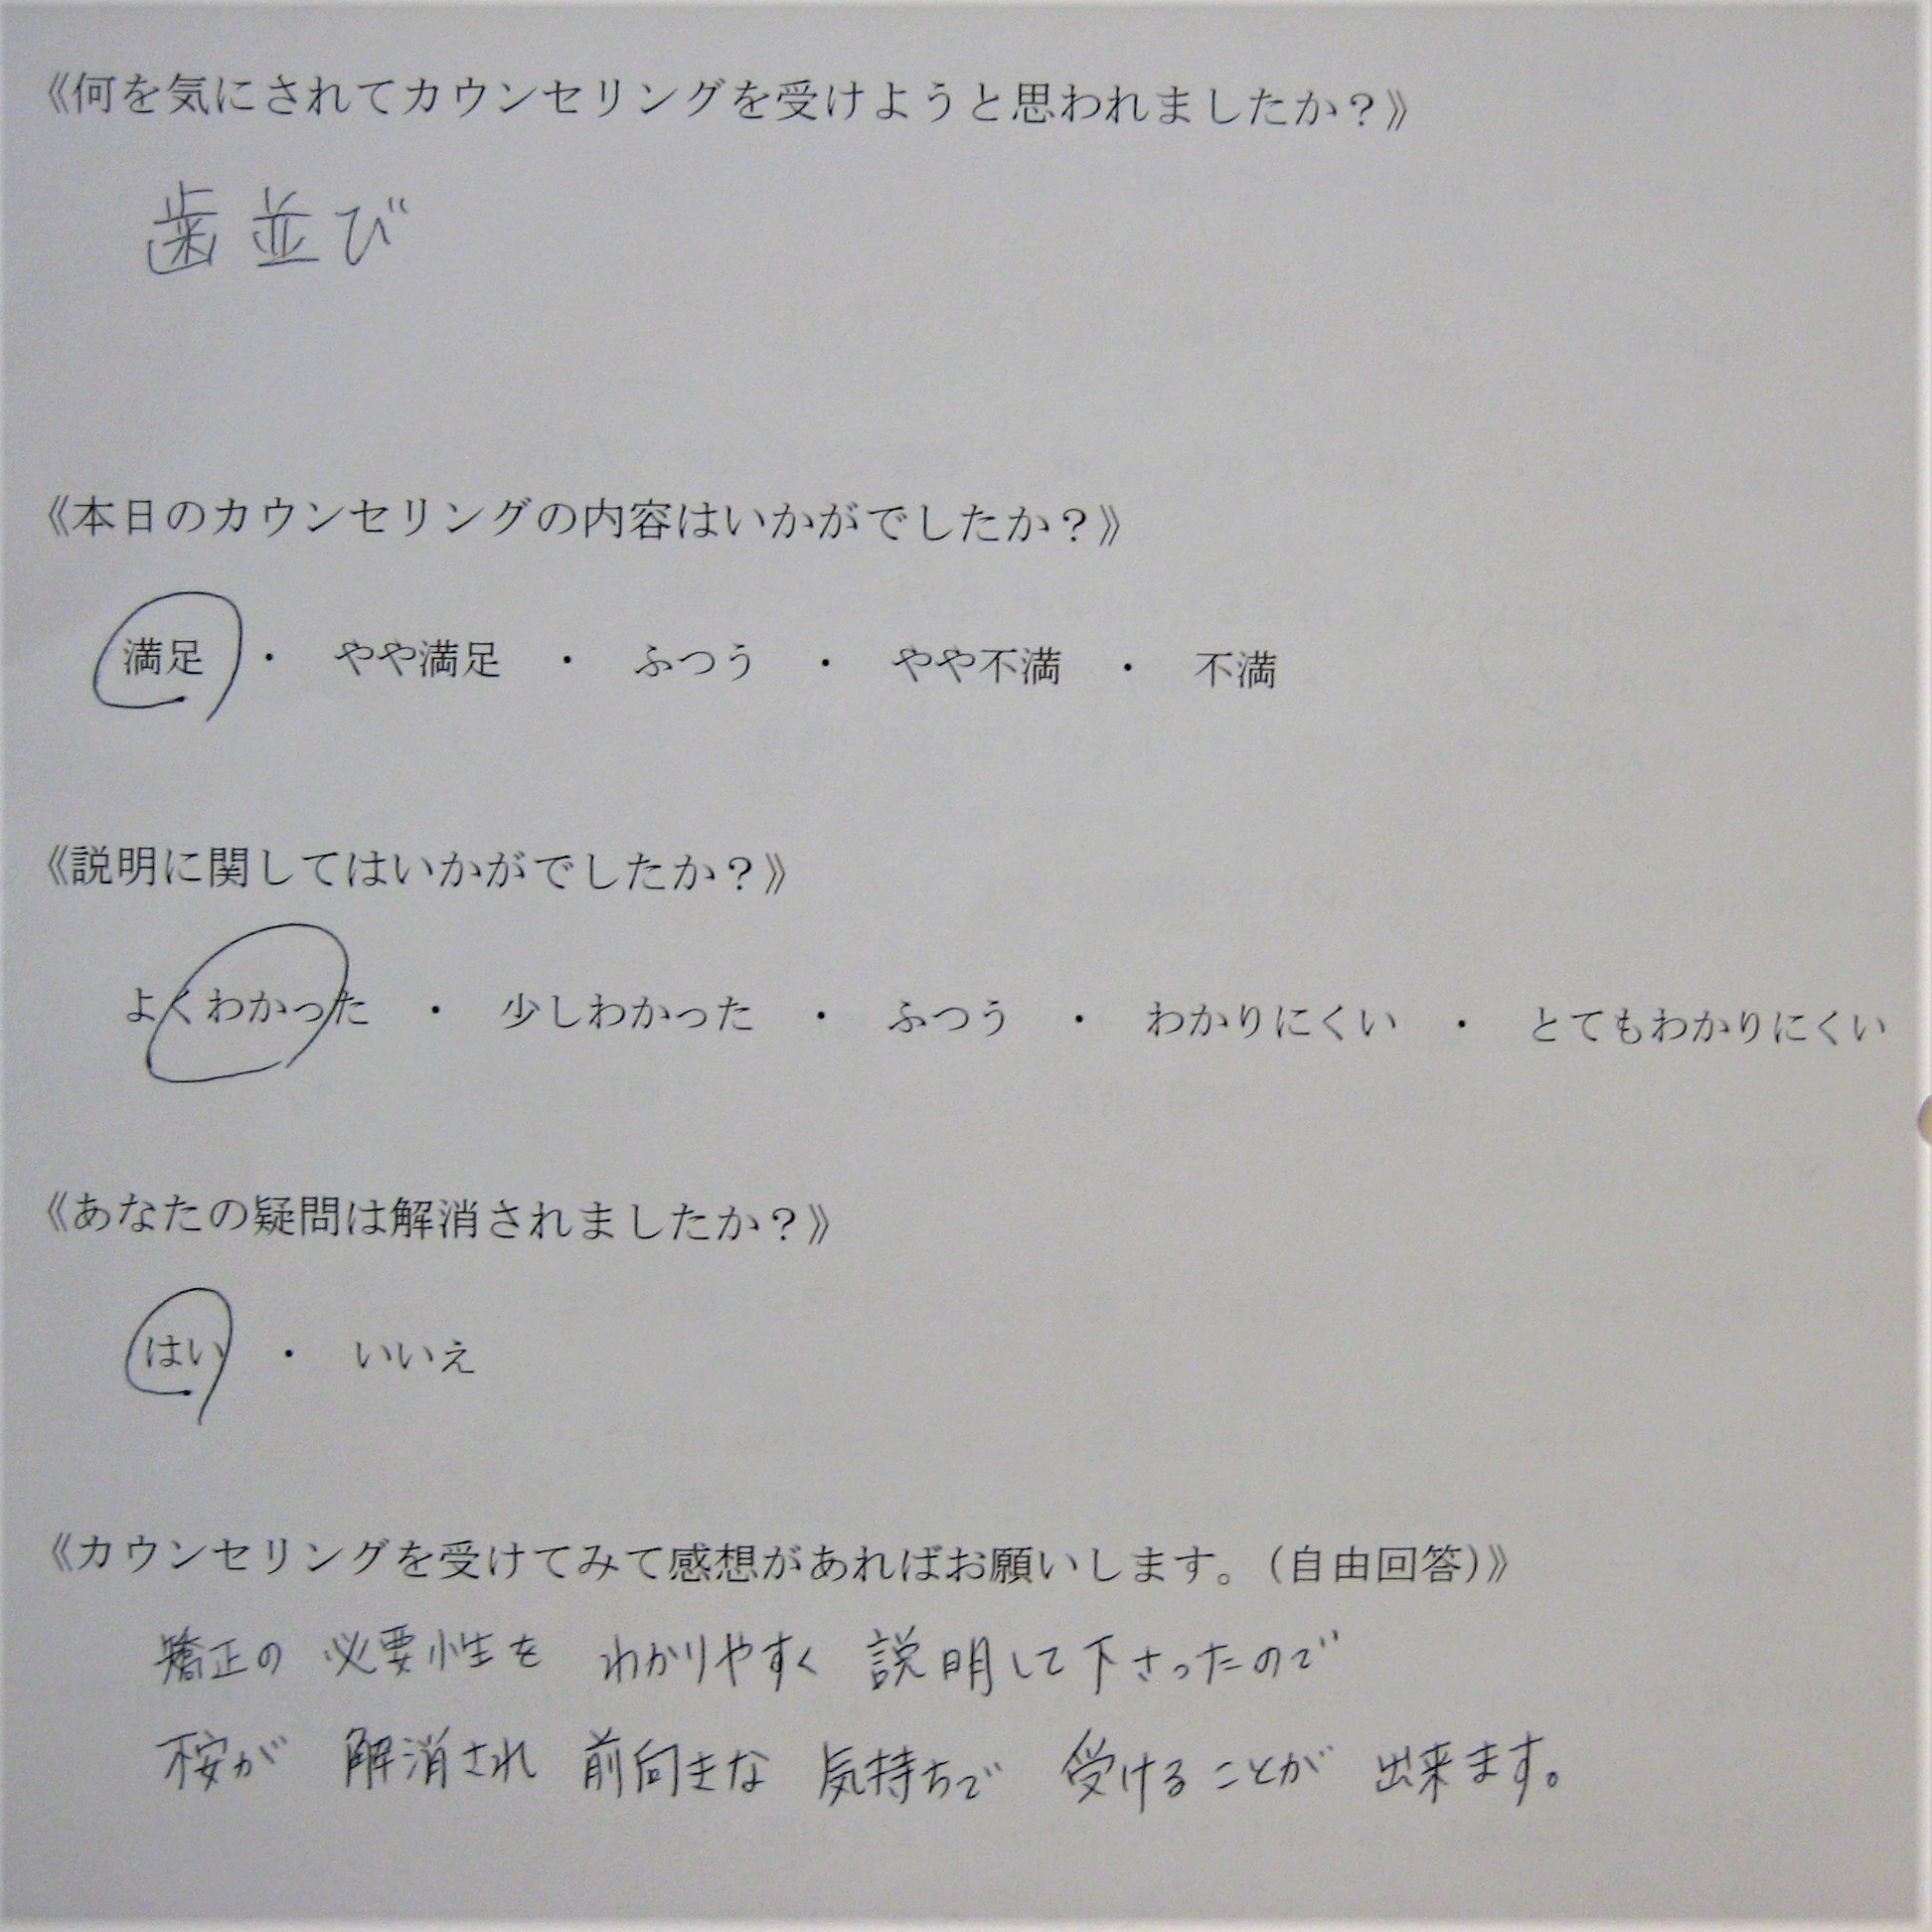 《何を気にされてカウンセリングを受けようと思われましたか？》
歯並び
《本日のカウンセリングの内容はいかがでしたか？》
満足　・　やや満足　・　ふつう　・　やや不満　・　不満
《説明に関してはいかがでしたか？》
よくわかった　・　少しわかった　・　ふつう　・　わかりにくい　・　とてもわかりにくい
《あなたの疑問は解消されましたか？》
はい　・　いいえ
《カウンセリングを受けてみて感想があればお願いします。（自由回答）》
矯正の 必要性を わかりやすく 説明して下さったので
不安が 解消され 前向きな 気持ちで 受けることが 出来ます。